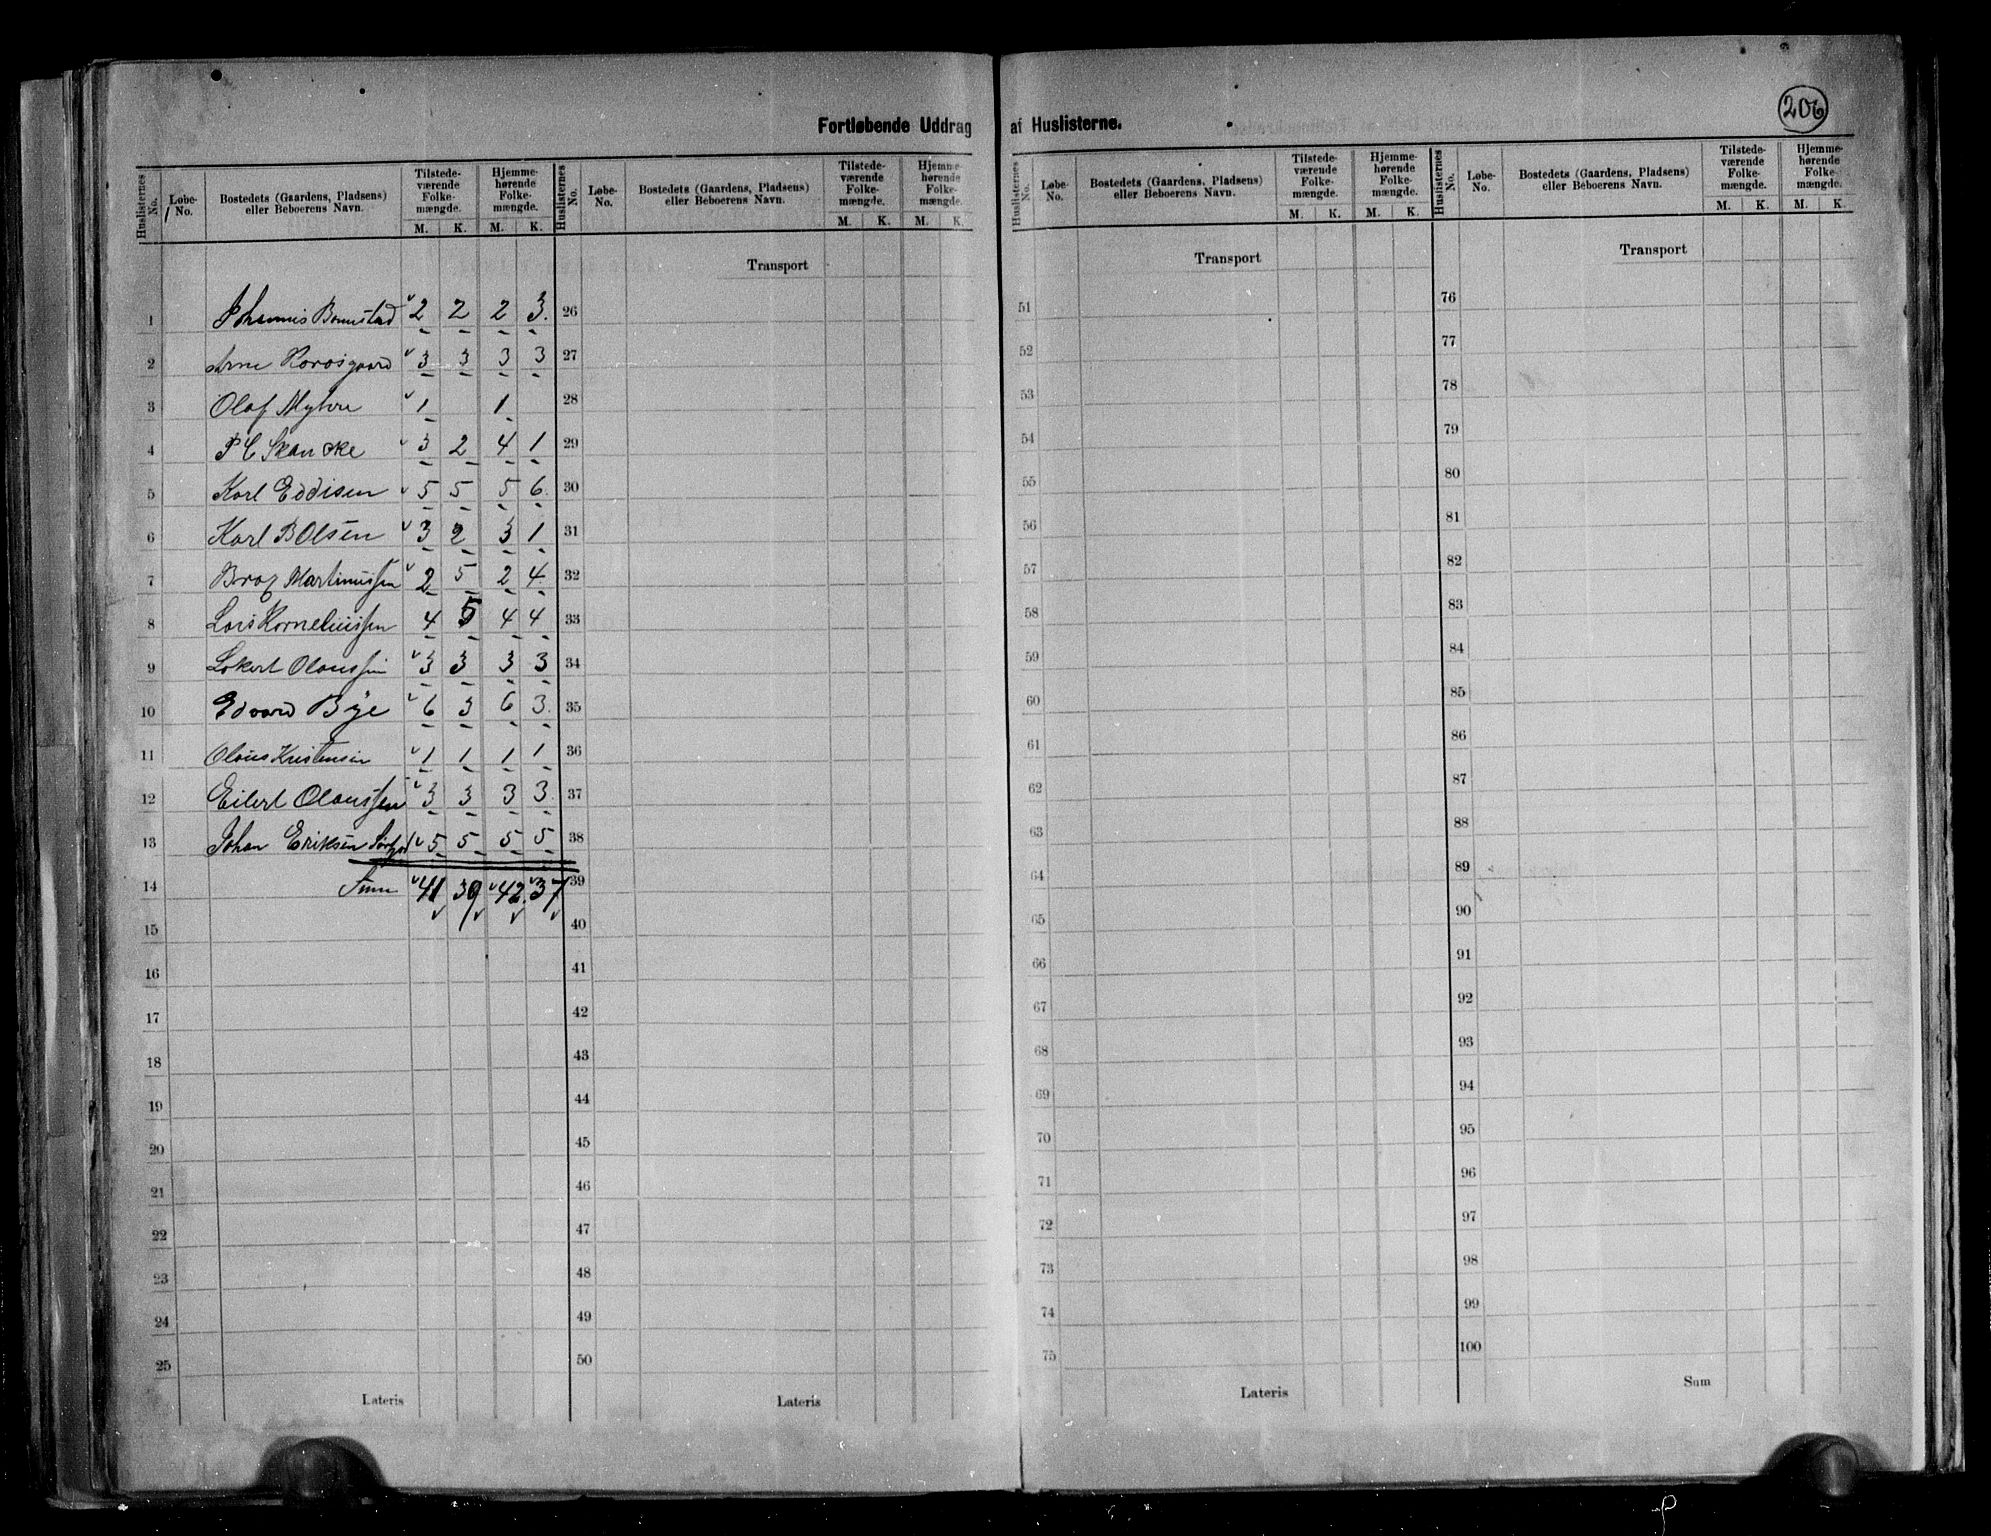 Fortløbende Uddrag af Huslisterne.
206
Huslisternes No. Løbe-No. Bostedets (Gaardens, Pladsens) eller Beboerens Navn. Tilstede-værende Folke-mængde. M. K. Hjemme-hørende Folke-mængde. M. K.
Huslisternes No. Løbe-No. Bostedets (Gaardens, Pladsens) eller Beboerens Navn. Tilstede-værende Folke-mængde. M. K. Hjemme-hørende Folke-mængde. M. K.
Huslisternes No. Løbe-No. Bostedets (Gaardens, Pladsens) eller Beboerens Navn. Tilstede-værende Folke-mængde. M. K. Hjemme-hørende Folke-mængde. M. K.
Huslisternes No. Løbe-No. Bostedets (Gaardens, Pladsens) eller Beboerens Navn. Tilstede-værende Folke-mængde. M. K. Hjemme-hørende Folke-mængde. M. K.
1 Johannis 2 2 2 3.
2 Arne Rorosgaard 3 3 3 3
3 Olaf Myhre 1 1
4 P C Skancke 3 2 4 1
5 Karl Eddisen 5 5 5 6.
6 Karl B Olsen 3 2 3 1
7 Martinussen 2 5 2 4.
8 Korneliussen 4 5 4 4
9 Lokert Olaussen 3 3 3 3
10 Edvard Bye 6 3 6 3.
11 Olaus Kristensen 1 1 1 1
12 Eilert Olaussen 3 3 3 3
13 Johan Eriksen 5 5 5 5
14 Sum 41 39 42 37
15
16
17
18
19
20
21
22
23
24
25
Lateris
Transport
26
27
28
29
30
31
32
33
34
35
36
37
38
39
40
41
42
43
44
45
46
47
48
49
50
Lateris
Transport
51
52
53
54
55
56
57
58
59
60
61
62
63
64
65
66
67
68
69
70
71
72
73
74
75
Lateris
Transport
76
77
78
79
80
81
82
83
84
85
86
87
88
89
90
91
92
93
94
95
96
97
98
99
100
Sum